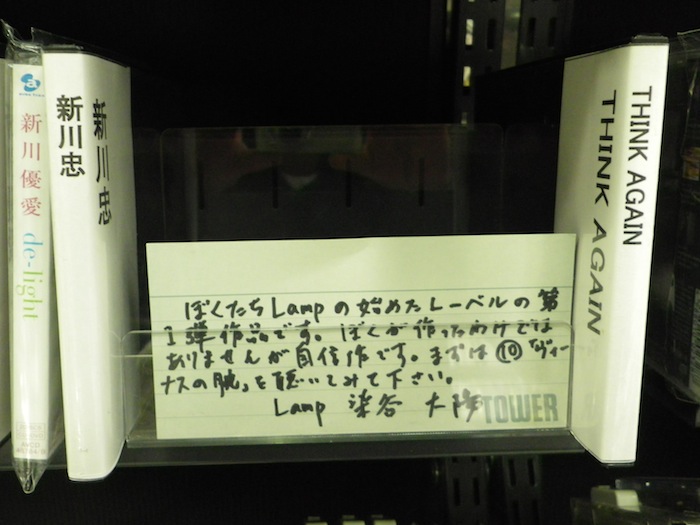 新川優愛 de-light
新川忠
新川忠
ぼくたちLampの始めたレーベルの第
1弾作品です。ぼくが作ったわけでは
ありませんが自信作です。まずは⑩「ヴィー
ナスの腕」を聴いてみて下さい。
Lamp 染谷 大陽
TOWER
THINK AGAIN
THINK AGAIN